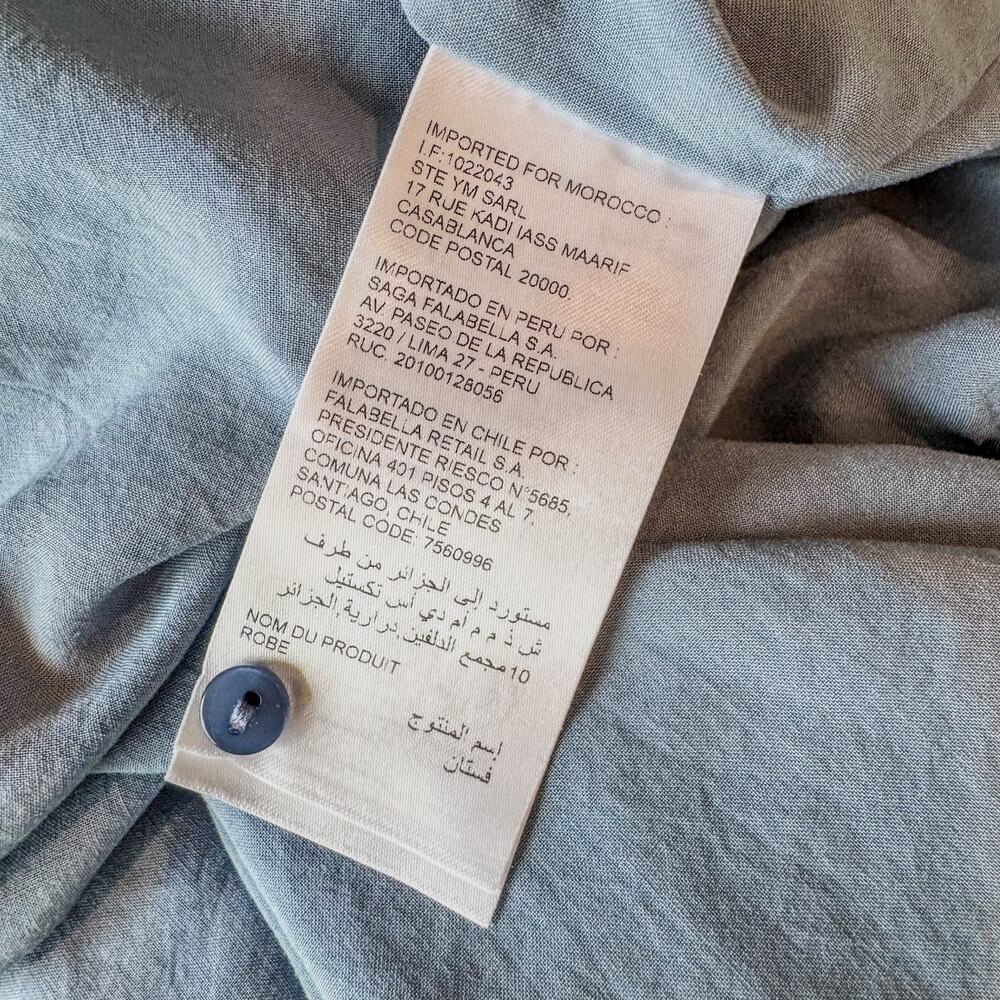 IMPORTED FOR MOROCCO :
I.F:1022043
STE YM SARL
17 RUE KADI IASS MAARIF
CASABLANCA
CODE POSTAL 20000.
IMPORTADO EN PERU POR :
SAGA FALABELLA S.A.
AV. PASEO DE LA REPUBLICA
3220 / LIMA 27 - PERU
RUC. 20100128056
IMPORTADO EN CHILE POR :
FALABELLA RETAIL S.A.
PRESIDENTE RIESCO N°5685,
OFICINA 401 PISOS 4 AL 7,
COMUNA LAS CONDES
SANTIAGO, CHILE
POSTAL CODE: 7560996
مستورد إلى الجزائر من طرف
ش ذ م م أم دي أس تكستيل
10 مجمع الدلفين,درارية,الجزائر
NOM DU PRODUIT
ROBE
إسم المنتوج
فستان